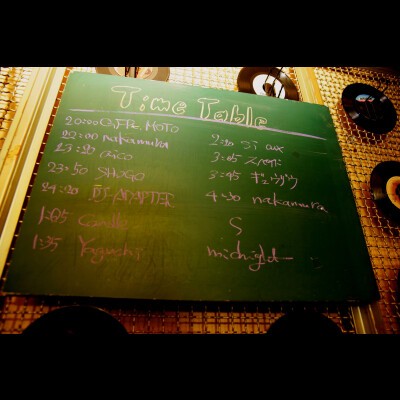 Time Table
20:00 G.F.R. MOTO
22:00 nakamura
23:20 rico
23:50 SHOGO
24:20 ADAPTER
1:05 Candle
1:35 Yoguchi
2:20 Si aux
3:05
3:45 ギュウゾウ
4:30 nakamura
S
midnight